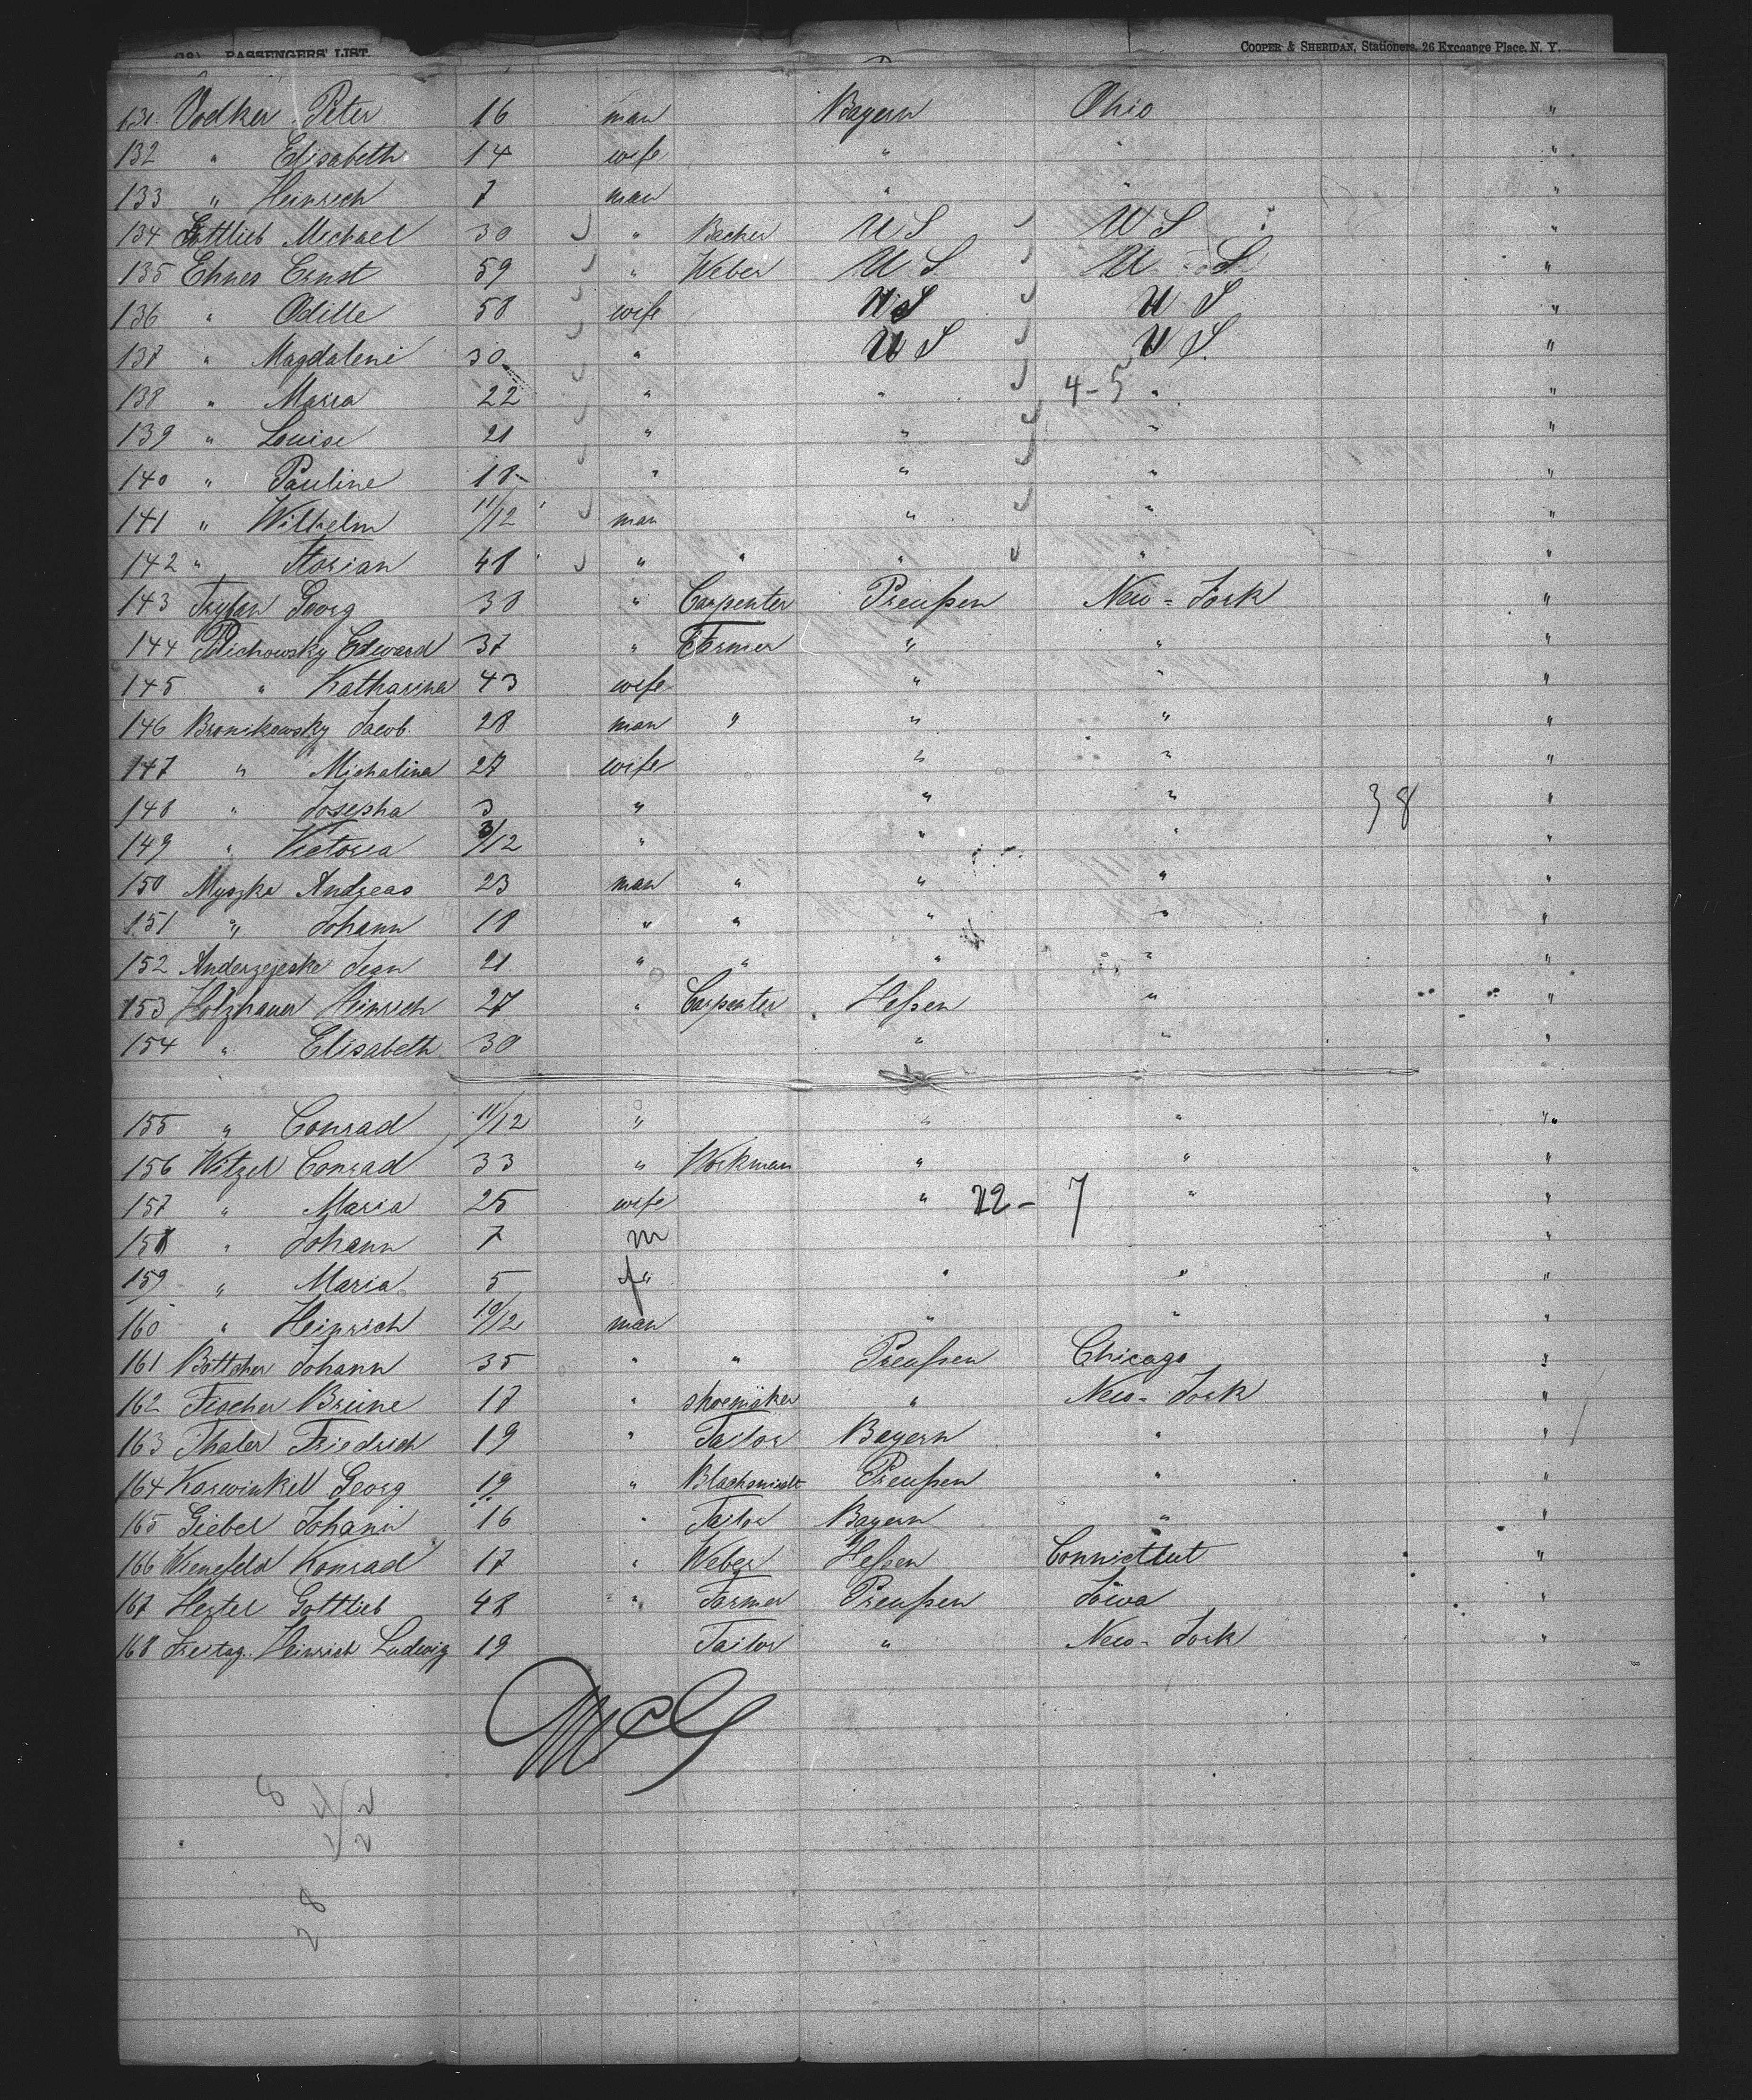 PASSENGERS' LIST.
COOPER & SHERIDAN, Stationers, 26 Exchange Place, N. Y.
131. Vodker Peter 16 man Bayern Ohio "
132 " Elisabeth 14 wife " " "
133 " Heinrich 7 man " " "
134 Gottlieb Michael 30 " Becker U S U S "
135 Ehner Ernst 59 " Weber U S U S "
136 " Odille 58 wife U S U S "
137 " Magdalene 30 " U S U S "
138 " Maria 22 " " 4-5 " "
139 " Louise 21 " " " "
140 " Pauline 18 " " " "
141 " Wilhelm 11/12 man " " "
142 " Florian 48 " " " " "
143 Georg 38 " Carpenter Preußen New-York "
144 Edward 37 " Farmer " " "
145 " Katharina 43 wife " " "
146 Bronikowsky Jacob 28 man " " " "
147 " Michalina 27 wife " " "
148 " Josepha 3 " " " 38 "
149 " Victoria 3/12 " " " "
150 Myszka Andreas 23 man " " " "
151 " Johann 18 " " " " "
152 Anderzejeske Jean 21 " " " " "
153 Holzhauer Heinrich 27 " Carpenter Heßen " "
154 " Elisabeth 30 " " "
155 " Conrad 11/12 " " " "
156 Witzel Conrad 33 " Workman " " "
157 " Maria 25 wife " 22-7 " "
158 " Johann 7 m "
159 " Maria 5 f " " "
160 " Heinrich 10/12 man " " "
161 Böttcher Johann 35 " " Preußen Chicago "
162 Fischer Brüne 17 " shoemaker " New-York "
163 Thaler Friedrich 19 " Tailor Bayern " "
164 Karwinkel Georg 19 " Blacksmidt Preußen " "
165 Giebel Johann 16 " Tailor Bayern " "
166 Wienefeld Konrad 17 " Weber Heßen Connictlut "
167 Hertel Gottlieb 48 " Farmer Preußen Iowa "
168 Freitag Heinrich Ludwig 19 Tailor " New-York "